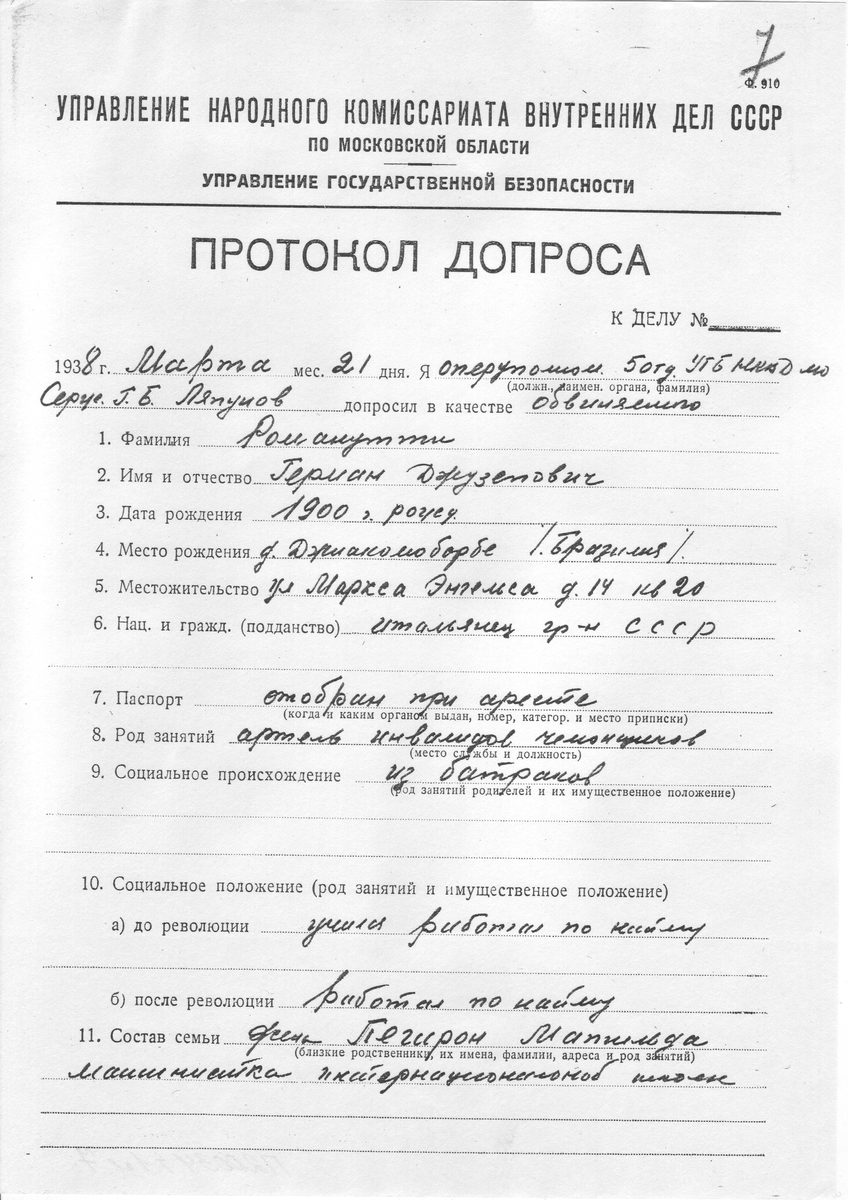 7
Ф. 910
УПРАВЛЕНИЕ НАРОДНОГО КОМИССАРИАТА ВНУТРЕННИХ ДЕЛ СССР
ПО МОСКОВСКОЙ ОБЛАСТИ
УПРАВЛЕНИЕ ГОСУДАРСТВЕННОЙ БЕЗОПАСНОСТИ
ПРОТОКОЛ ДОПРОСА
К ДЕЛУ №
1938 г. Марта мес. 21 дня. Я оперуполном. 5 отд. УГБ НКВД МО
(должн., наимен. органа, фамилия)
Серж. Г. Б. Ляпунов допросил в качестве обвиняемого
1. Фамилия Романутти
2. Имя и отчество Герман Джузепович
3. Дата рождения 1900 г. рожд
4. Место рождения д. Джиакомоборбе /. Бразилия /.
5. Местожительство ул Маркса Энгельса д. 14 кв 20
6. Нац. и гражд. (подданство) итальянец гр-н СССР
7. Паспорт отобран при аресте
(когда и каким органом выдан, номер, категор. и место приписки)
8. Род занятий артель инвалидов
(место службы и должность)
9. Социальное происхождение из батраков
(род занятий родителей и их имущественное положение)
10. Социальное положение (род занятий и имущественное положение)
а) до революции работал по найму
б) после революции работал по найму
11. Состав семьи жена Пегирон Матильда
(близкие родственники, их имена, фамилии, адреса и род занятий)
машинистка